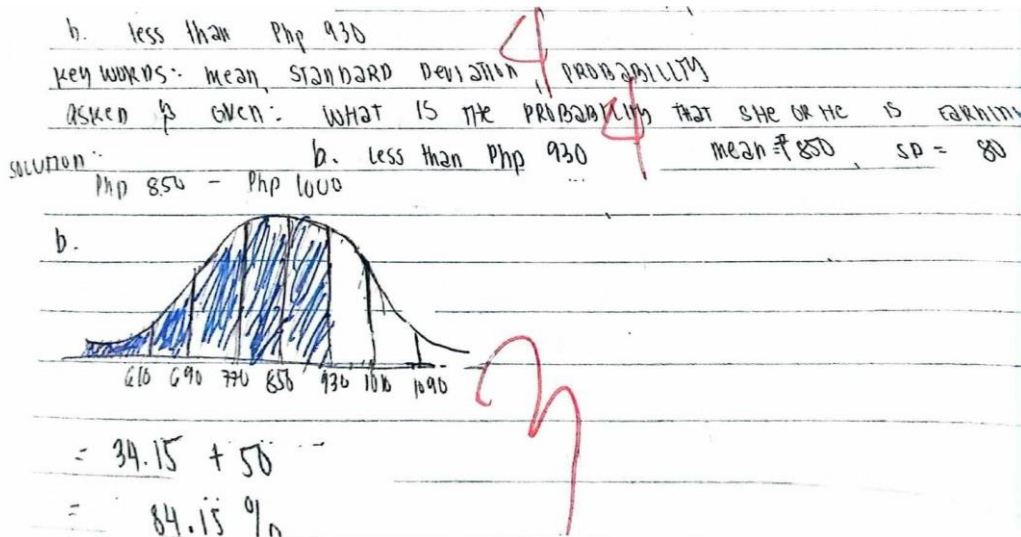 b. less than Php 930
4
Key words: mean, STANDARD DEVIATION, PROBABILITY
asken & Given: WHAT IS THE PROBABILITY THAT SHE OR HE IS EARNING
4
solution: b. less than Php 930 mean = ₱850, SD = 80
Php 850 - Php 1000
b.
610 690 770 850 930 1010 1090
3
= 34.15 + 50
= 84.15 %